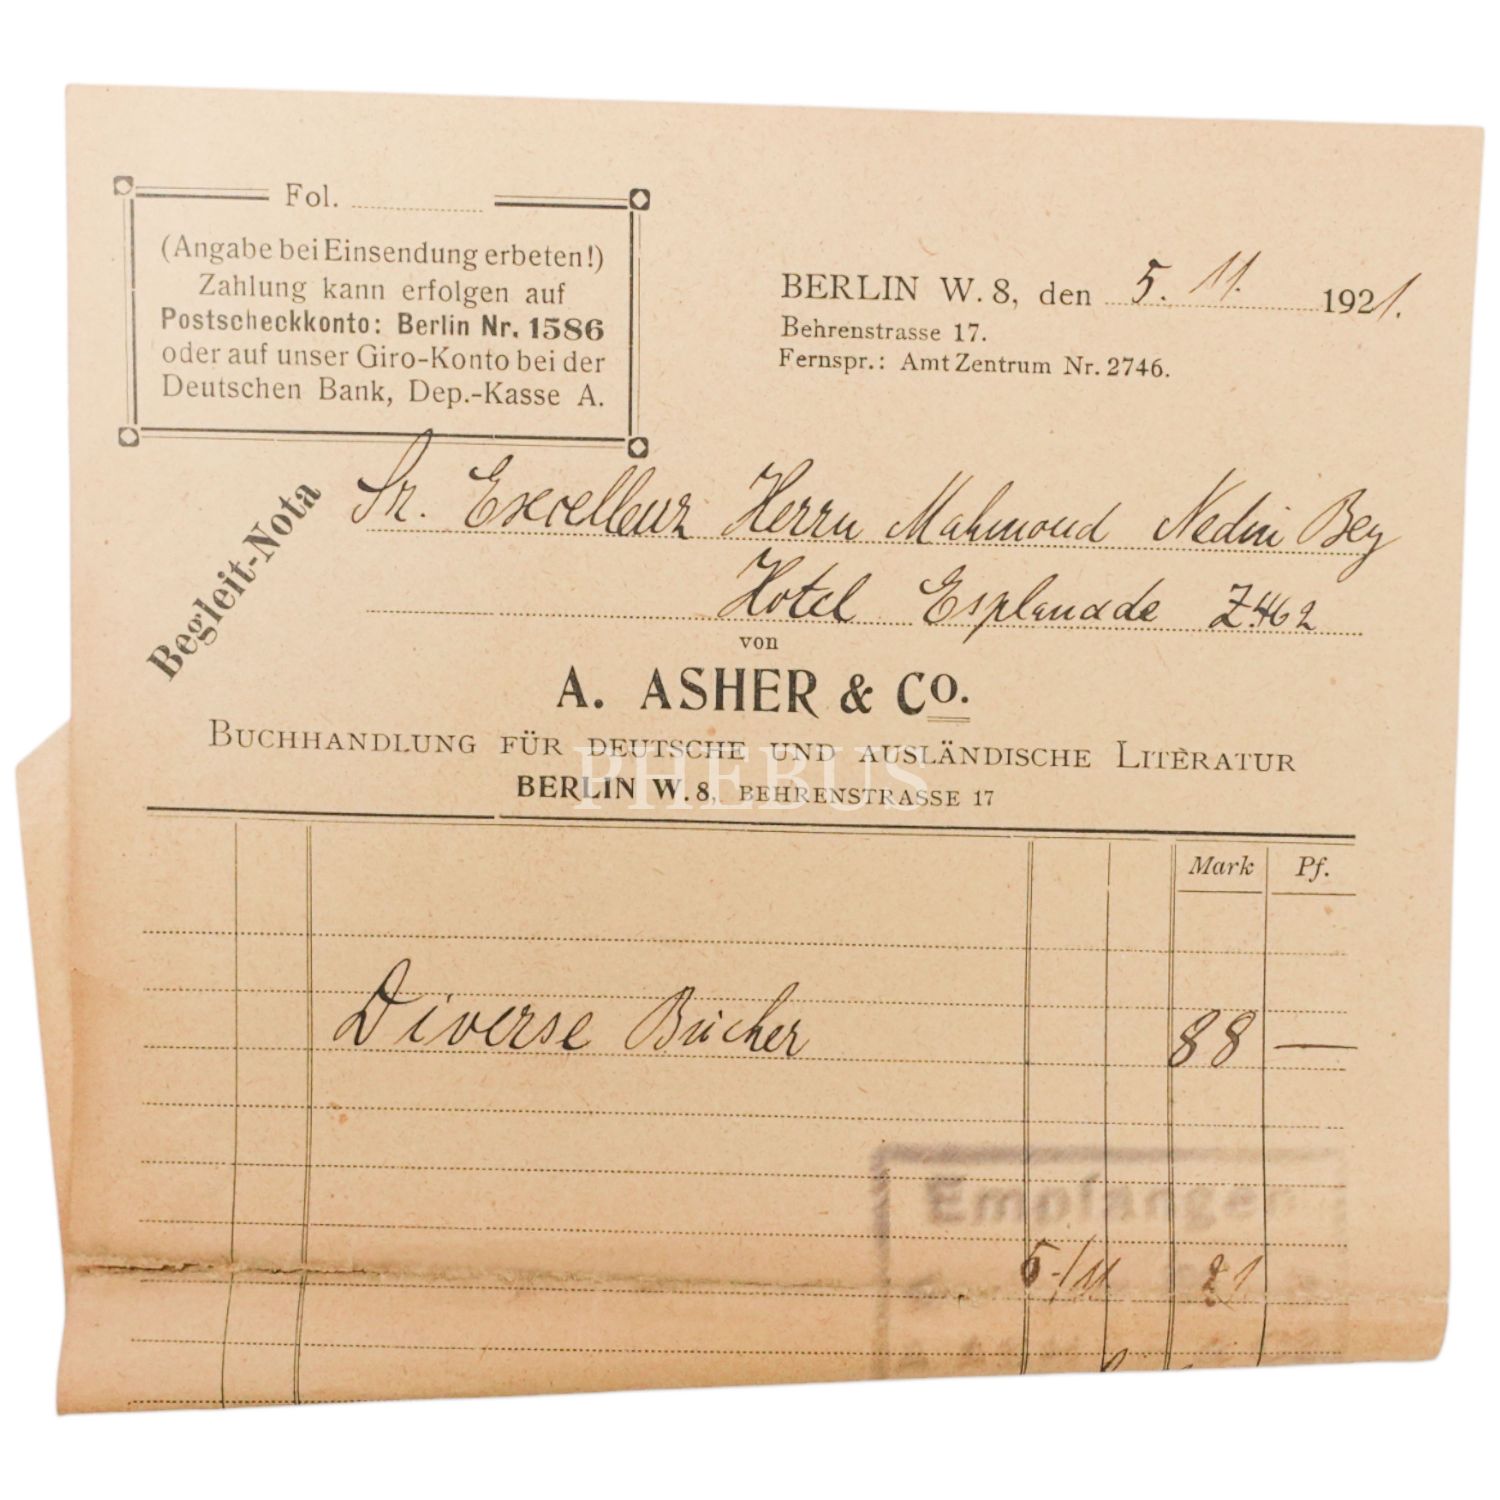 Fol.
(Angabe bei Einsendung erbeten!)
Zahlung kann erfolgen auf
Postscheckkonto: Berlin Nr. 1586
oder auf unser Giro-Konto bei der
Deutschen Bank, Dep.-Kasse A.
BERLIN W. 8, den 5. 11. 1921.
Behrenstrasse 17.
Fernspr.: Amt Zentrum Nr. 2746.
Begleit-Nota
Sr. Excellenz Herrn Mahmoud Nedin Bey
Hotel Esplanade Z. 462
von
A. ASHER & Co.
BUCHHANDLUNG FÜR DEUTSCHE UND AUSLÄNDISCHE LITERATUR
PHEBUS
BERLIN W. 8, BEHRENSTRASSE 17
Mark Pf.
Diverse Bücher 88 —
Empfangen
5/11 21